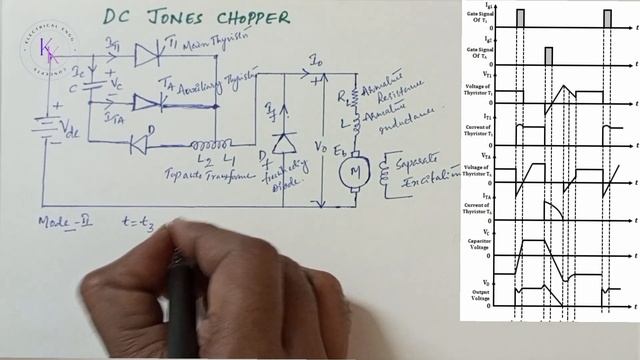 DC JONES CHOPPER
ELECTRICAL ENGG
K
I_T1
T1
Main Thyristor
I_C
C
V_C
TA
Auxiliary Thyristor
I_TA
D
L2 L1
I_f
I_0
+
V_dc
V_0
D_f
R
L
Armature
Resistance
Armature
inductance
E_b
M
Separate
Excitation
Mode-II t=t3
I_g1
Gate Signal
Of T1
0
t
I_g2
Gate Signal
Of TA
0
t
V_T1
Voltage of
Thyristor T1
0
t
I_T1
Current of
Thyristor T1
0
t
V_TA
Voltage of
Thyristor TA
0
t
I_TA
Current of
Thyristor TA
0
t
V_C
Capacitor
Voltage
0
t
V_0
Output
Voltage
0
t